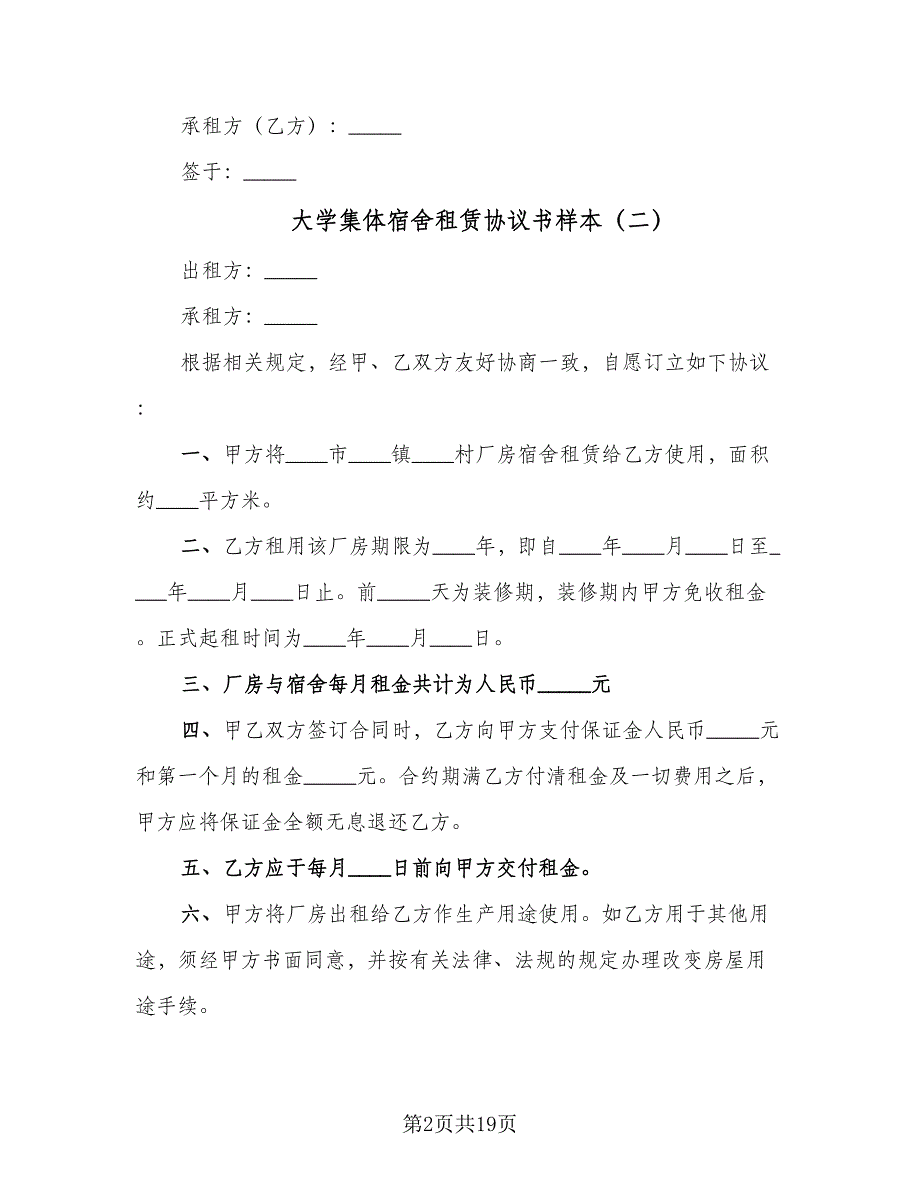 承租方（乙方）：_____
签于：_____
大学集体宿舍租赁协议书样本（二）
出租方：_____
承租方：_____
根据相关规定，经甲、乙双方友好协商一致，自愿订立如下协议
：
一、甲方将____市____镇____村厂房宿舍租赁给乙方使用，面积
约____平方米。
二、乙方租用该厂房期限为____年，即自____年____月____日至_
___年____月____日止。前_____天为装修期，装修期内甲方免收租金
。正式起租时间为____年____月____日。
三、厂房与宿舍每月租金共计为人民币_____元
四、甲乙双方签订合同时，乙方向甲方支付保证金人民币_____元
和第一个月的租金_____元。合约期满乙方付清租金及一切费用之后，
甲方应将保证金全额无息退还乙方。
五、乙方应于每月____日前向甲方交付租金。
六、甲方将厂房出租给乙方作生产用途使用。如乙方用于其他用
途，须经甲方书面同意，并按有关法律、法规的规定办理改变房屋用
途手续。
第2页共19页